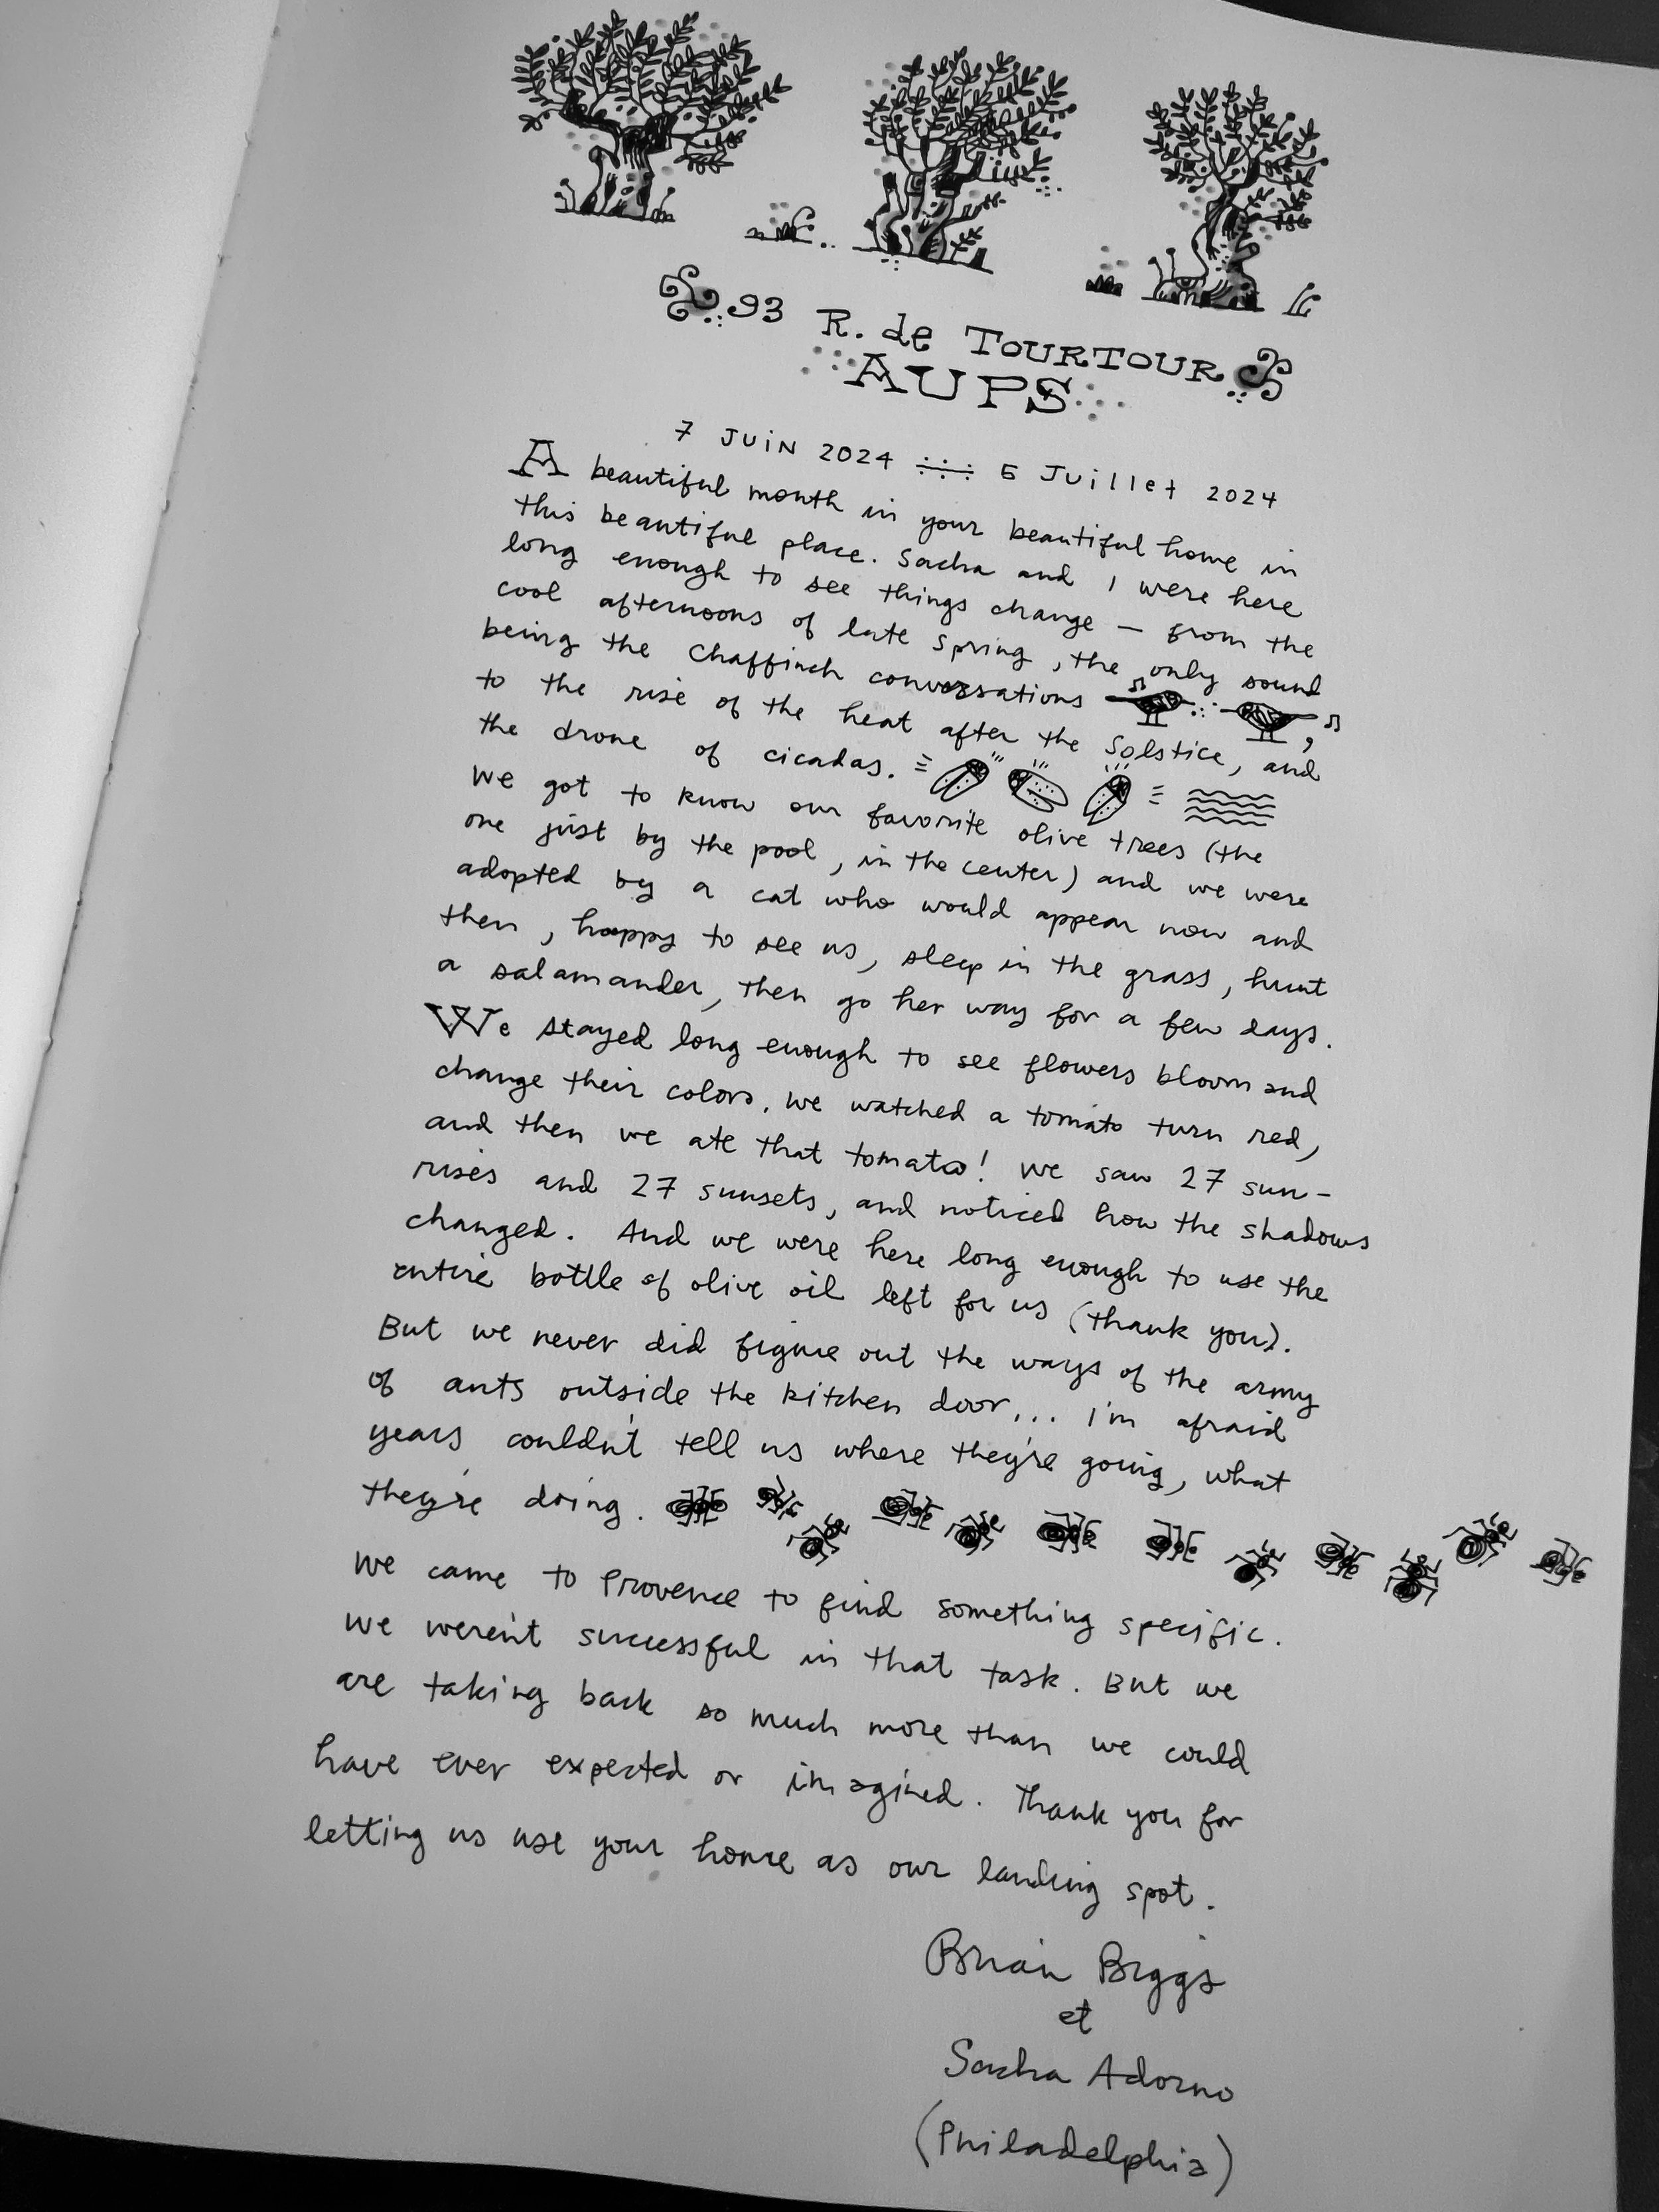 93 R. de TOURTOUR
AUPS
7 JUIN 2024 5 Juillet 2024
A beautiful month in your beautiful home in
this beautiful place. Sacha and I were here
long enough to see things change — from the
cool afternoons of late spring, the only sound
being the chaffinch conversations ,
to the rise of the heat after the Solstice, and
the drone of cicadas.
We got to know our favorite olive trees (the
one just by the pool, in the center) and we were
adopted by a cat who would appear now and
then, happy to see us, sleep in the grass, hunt
a salamander, then go her way for a few days.
We stayed long enough to see flowers bloom and
change their colors. We watched a tomato turn red,
and then we ate that tomato! We saw 27 sun-
rises and 27 sunsets, and noticed how the shadows
changed. And we were here long enough to use the
entire bottle of olive oil left for us (thank you).
But we never did figure out the ways of the army
of ants outside the kitchen door... I'm afraid
years couldn't tell us where they're going, what
they're doing.
We came to Provence to find something specific.
We weren't successful in that task. But we
are taking back so much more than we could
have ever expected or imagined. Thank you for
letting us use your home as our landing spot.
Brian Biggs
et
Sacha Adorno
(Philadelphia)